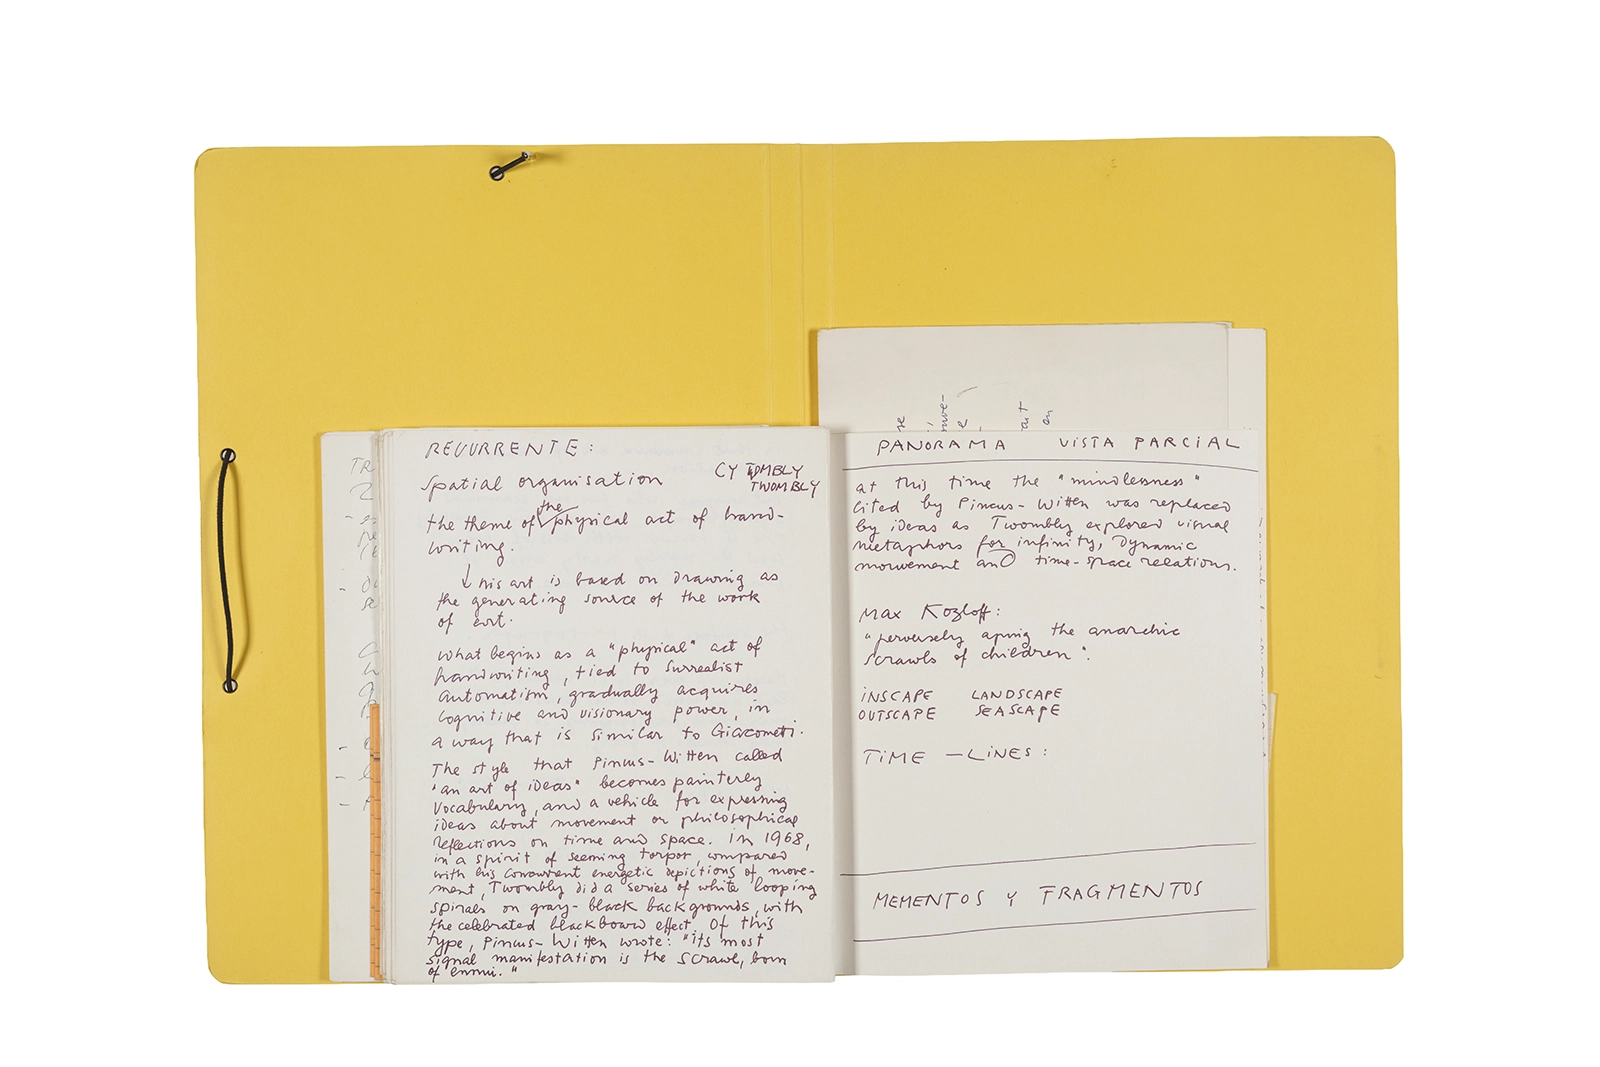 RECURRENTE:
CY TOMBLY
TWOMBLY
Spatial organisation
the theme of the physical act of hand-
writing.
↓ his art is based on Drawing as
the generating source of the work
of art.
what begins as a "physical" act of
handwriting, tied to Surrealist
automatism, gradually acquires
cognitive and visionary power, in
a way that is similar to Giacometi.
The style that Pincus-Witten called
"an art of ideas" becomes painterly
vocabulary, and a vehicle for expressing
ideas about movement or philosophical
reflections on time and space. In 1968,
in a spirit of seeming torpor, compared
with his concurrent energetic depictions of move-
ment, Twombly did a series of white looping
spirals on gray-black backgrounds, with
the celebrated blackboard effect. Of this
type, Pincus-Witten wrote: "its most
signal manifestation is the scrawl, born
of ennui."
PANORAMA VISTA PARCIAL
at this time the "mindlessness"
cited by Pincus-Witten was replaced
by ideas as Twombly explored visual
metaphors for infinity, Dynamic
mouvement and time-space relations.
Max Kozloff:
"perversely aping the anarchic
scrawls of children".
iNSCAPE LANDSCAPE
OUTSCAPE SEASCAPE
TiME -LiNES:
MEMENTOS y FRAGMENTOS